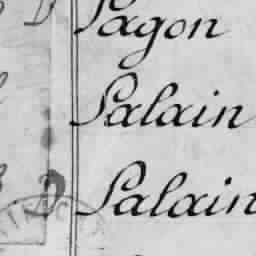 D Pagon
Palain
D Palain